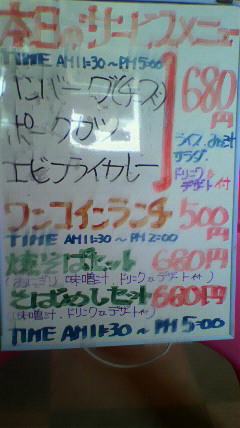 本日のサービスメニュー
TIME AM11:30～PM5:00
ハンバーグ(チーズ)
ポークカツ
エビフライカレー
680円
ライス.みそ汁
サラダ.
ドリンク&
デザート付
ワンコインランチ 500円
TIME AM11:30～PM2:00
焼そばセット 680円
(おにぎり 味噌汁.ドリンクorデザート付)
そばめしセット 680円
(味噌汁.ドリンクorデザート付)
TIME AM11:30～PM5:00